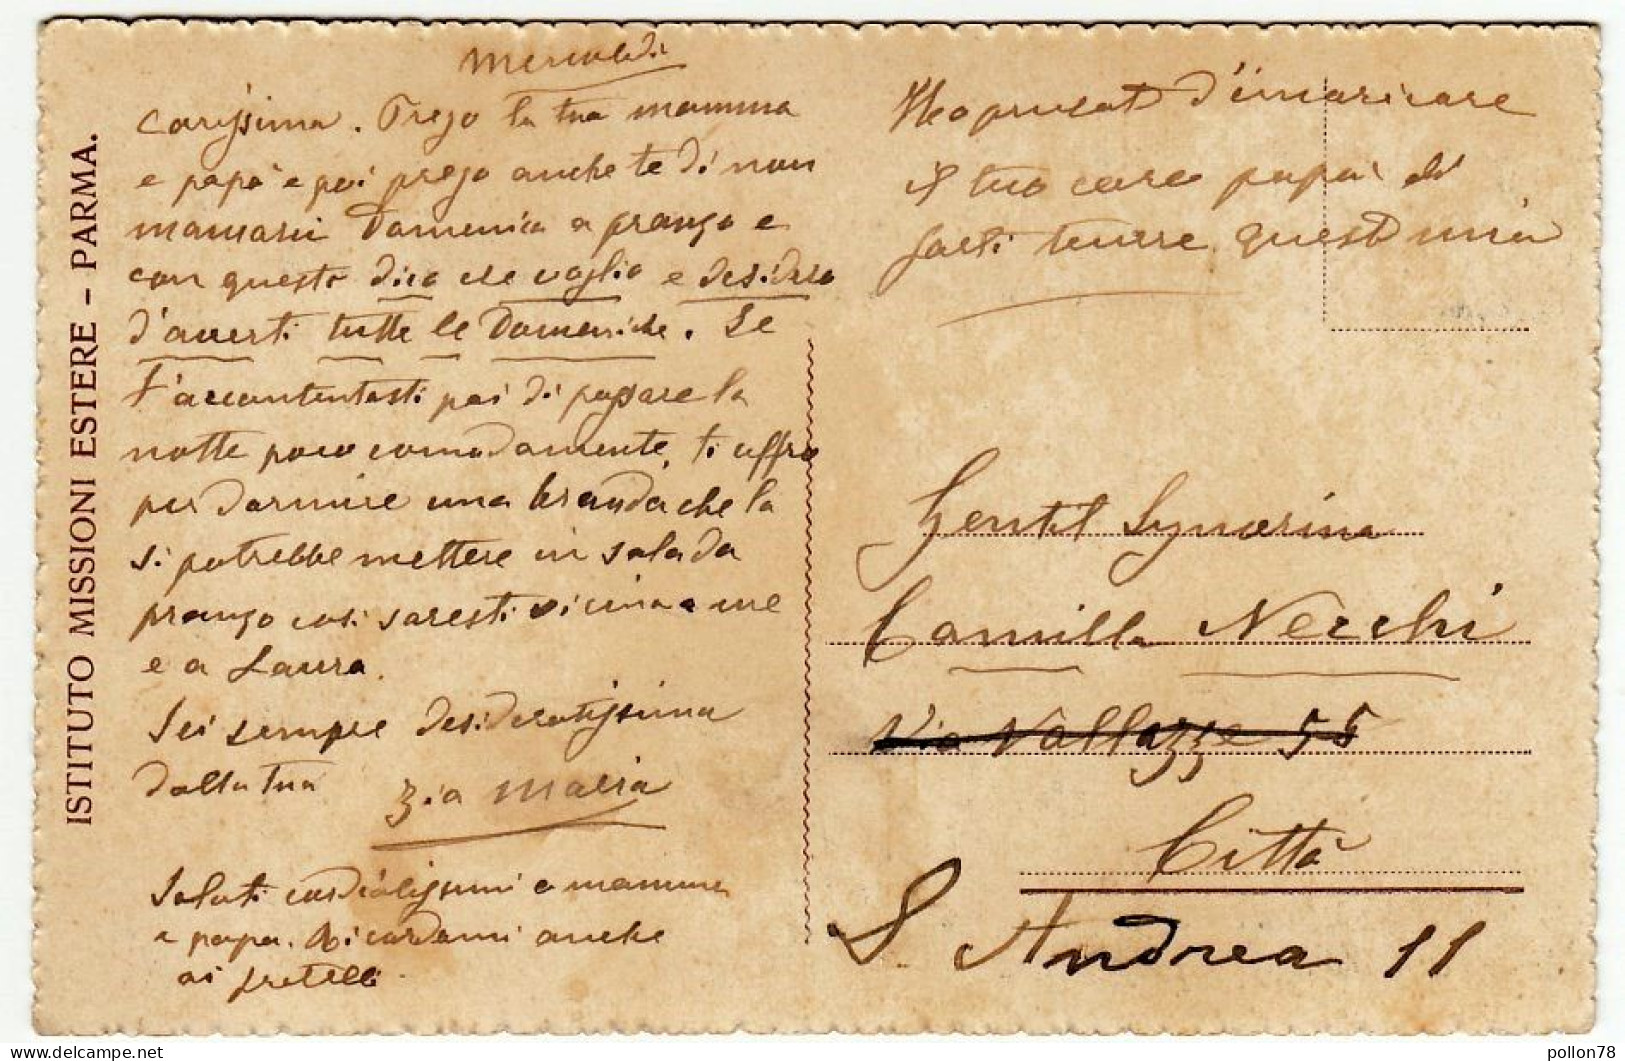 Mercoledì
Carissima. Prego la tua mamma
e papà e poi prego anche te di non
mancarci Domenica a pranzo e
con questo dico che voglio e desidero
d'averti tutte le Domeniche. Se
t'accontentasti poi di passare la
notte poco comodamente, ti offro
per dormire una branda che la
si potrebbe mettere in sala da
pranzo così saresti vicina a me
e a Laura.
Sei sempre desideratissima
dalla tua zia Maria
Saluti cordialissimi a mamma
e papa. Ricordami anche
ai fratelli.
d'incaricare
il tuo caro papà di
farti tenere questa mia
Gentil Signorina
Camilla Necchi
Via Vallazze 55
Città
S. Andrea 11
ISTITUTO MISSIONI ESTERE - PARMA.
delcampe.net
pollon78